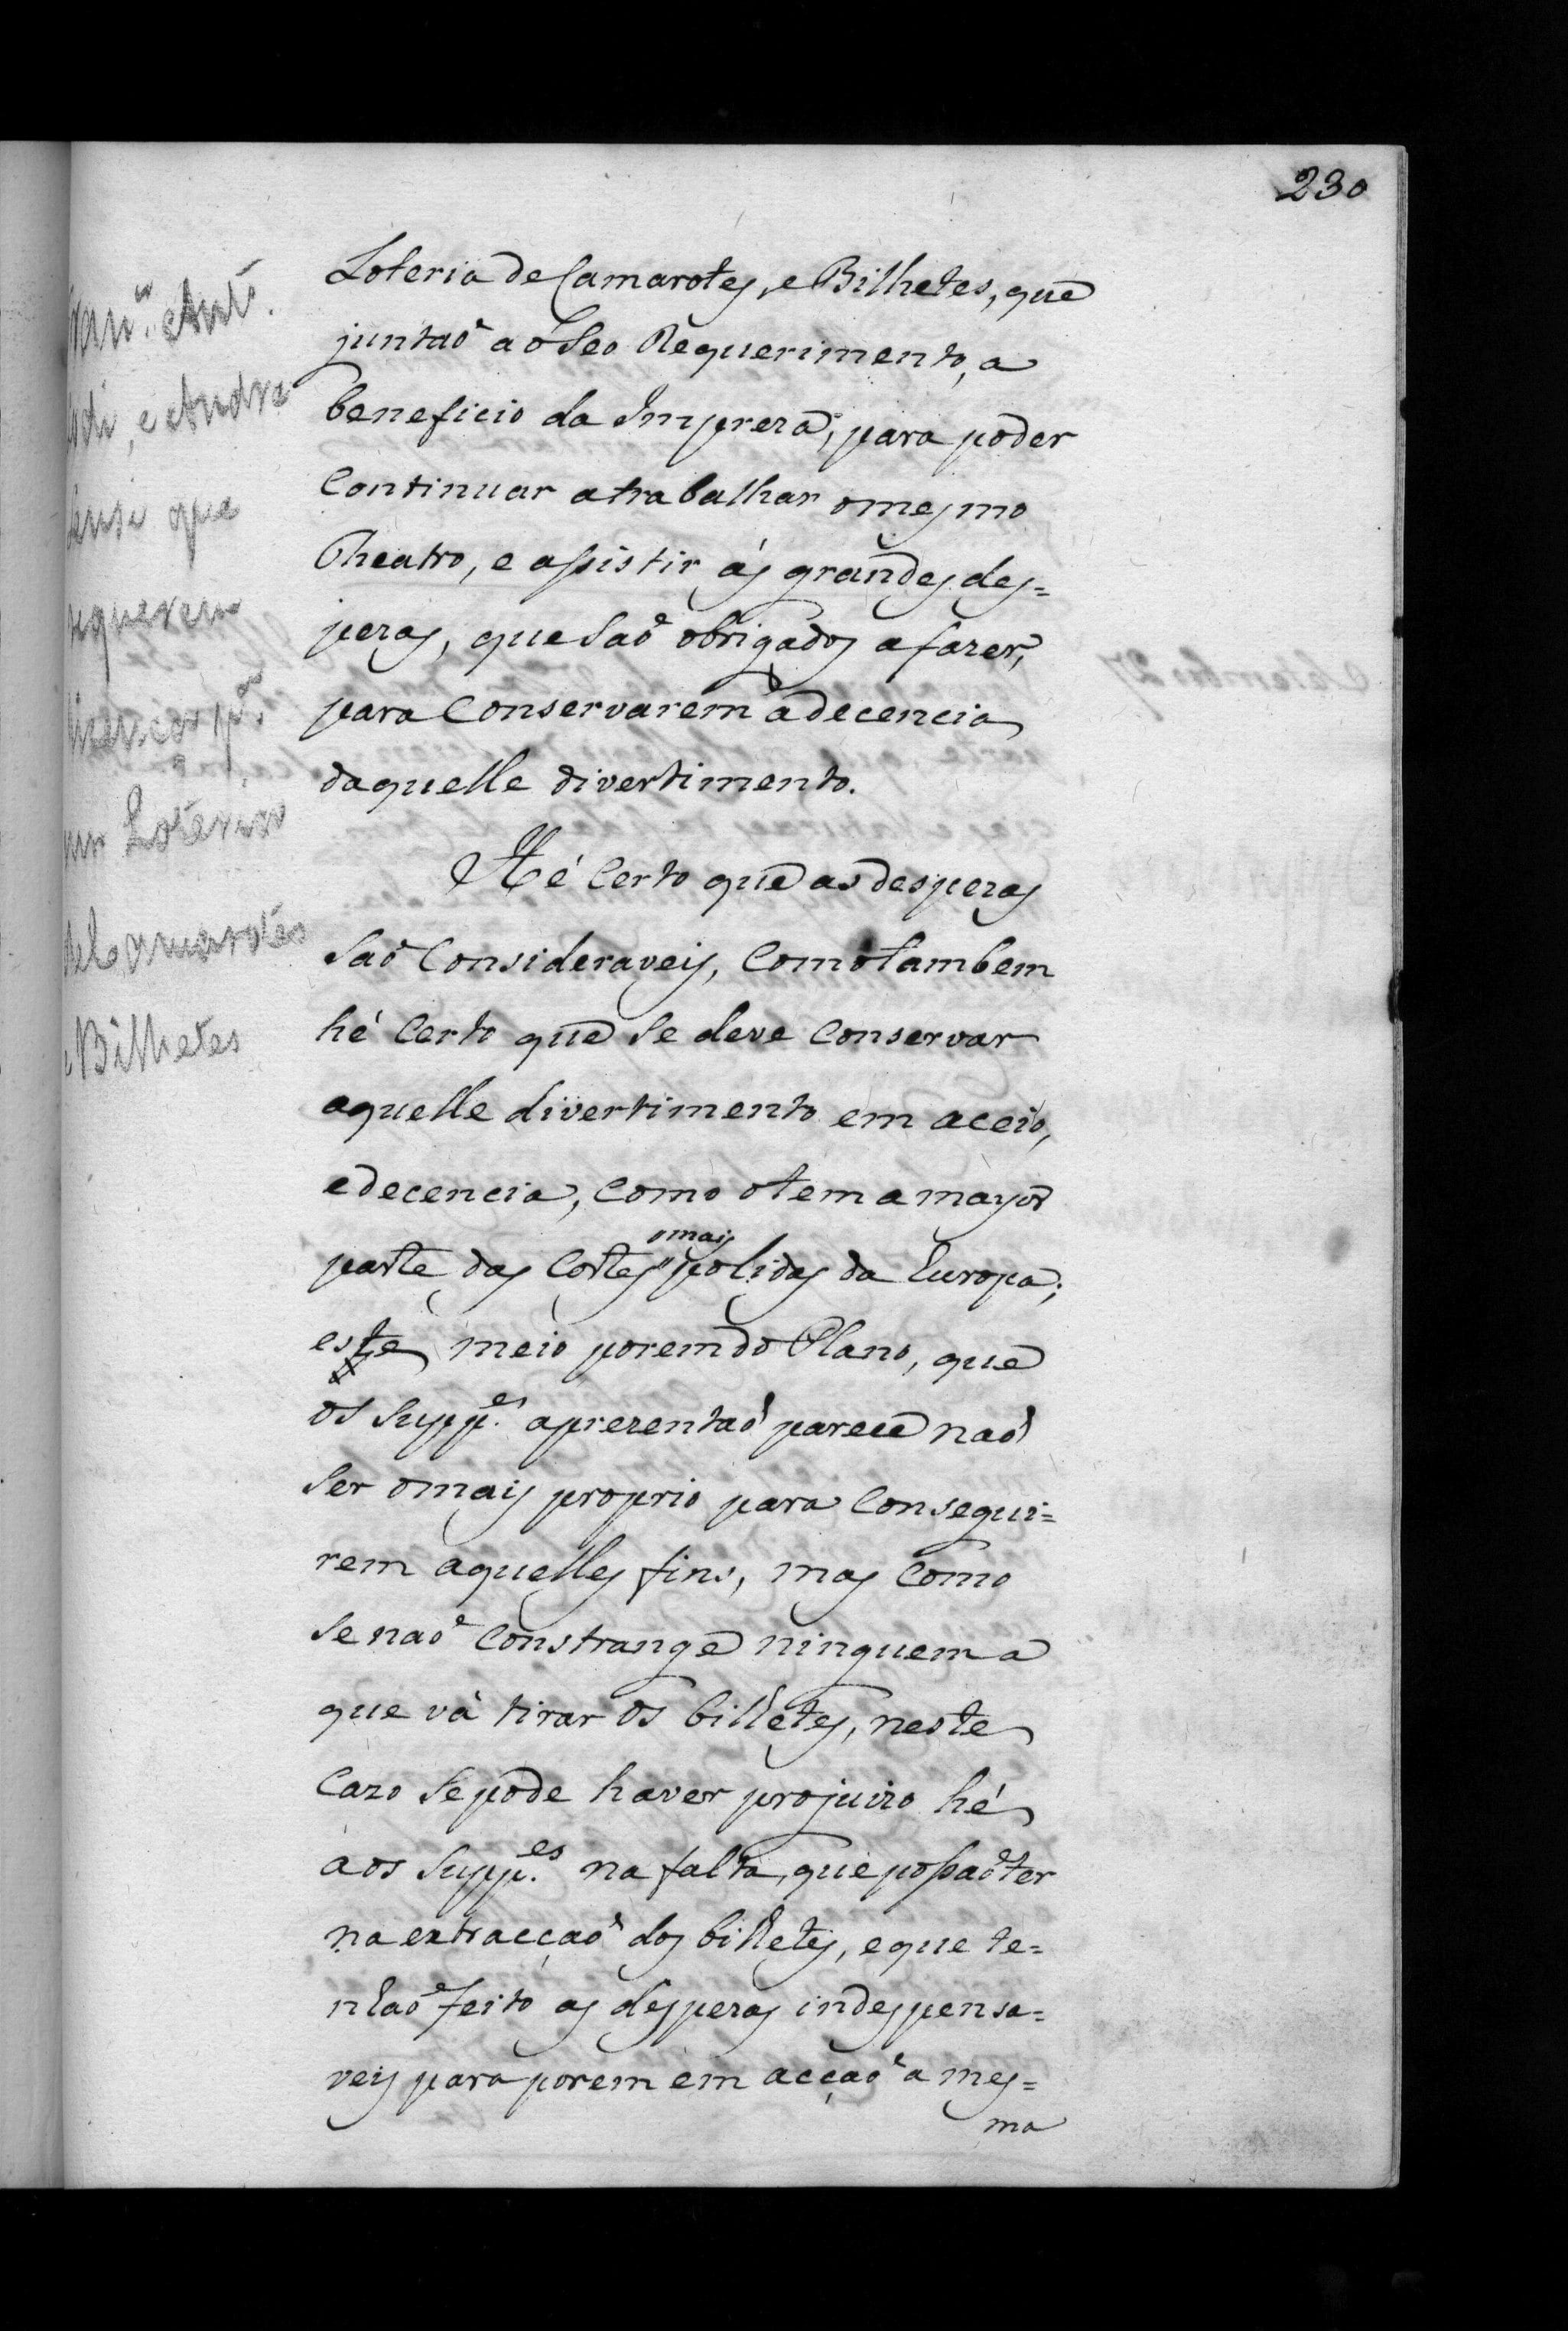 230
Loteria de Camarotes, e Bilhetes, que
juntaõ aó seo Requerimento, a
beneficio da Impreza; para poder
continuar a trabalhar o mesmo
Theatro, e assistir ás grandes des=
pezas, que saõ obrigados a fazer,
para conservarem a decencia
daquelle divertimento.
Hé certo que as despezas
saõ consideraveis, como tambem
hé certo que se deve conservar
aquelle divertimento em aceio,
e decencia, como o tem a mayor
parte das Cortes mais polidas da Europa;
este meio porem do Plano, que
os Supp.es aprezentaõ parece naõ
ser o mais proprio para consegui=
rem aquelles fins, mas como
se naõ constrange ninguem a
que vá tirar os bilhetes, neste
cazo se pode haver projuizo hé
aos Supp.es na falta, que possaõ ter
na extracçaõ dos bilhetes, e que te=
nhaõ feito as despezas indespensa=
veis para porem em acçaõ a mes=
ma
Ant.º
e Andre
que
requerem
Loteria
de Camarotes
e Bilhetes